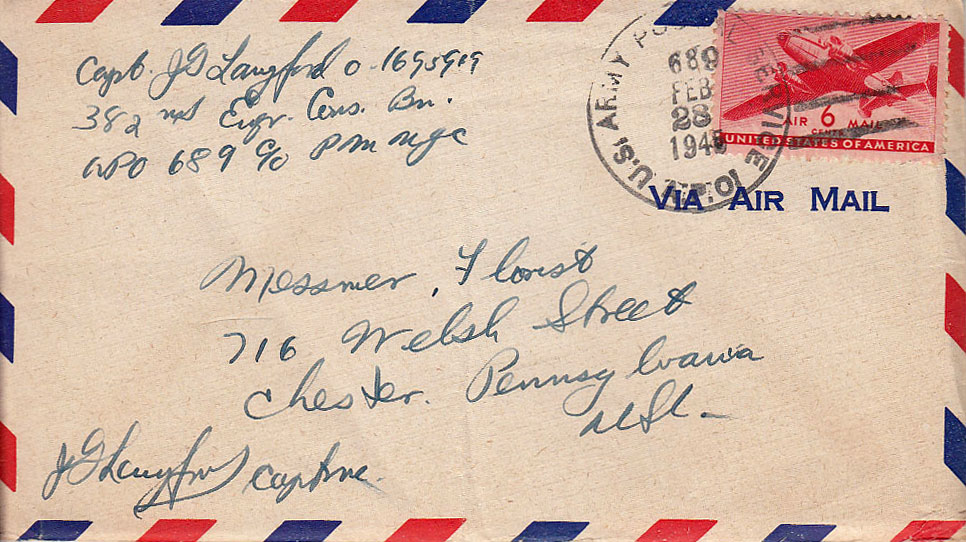 Capt. JG Langford O-1695919
382nd Engr. Cons. Bn.
APO 689 c/o PM NYC
U.S. ARMY POSTAL SERVICE
689
FEB
28
1945
A.P.O.
AIR 6 MAIL
CENTS
UNITED STATES OF AMERICA
VIA AIR MAIL
Messmer, Florist
716 Welsh Street
Chester. Pennsylvania
USA-
JG Langford